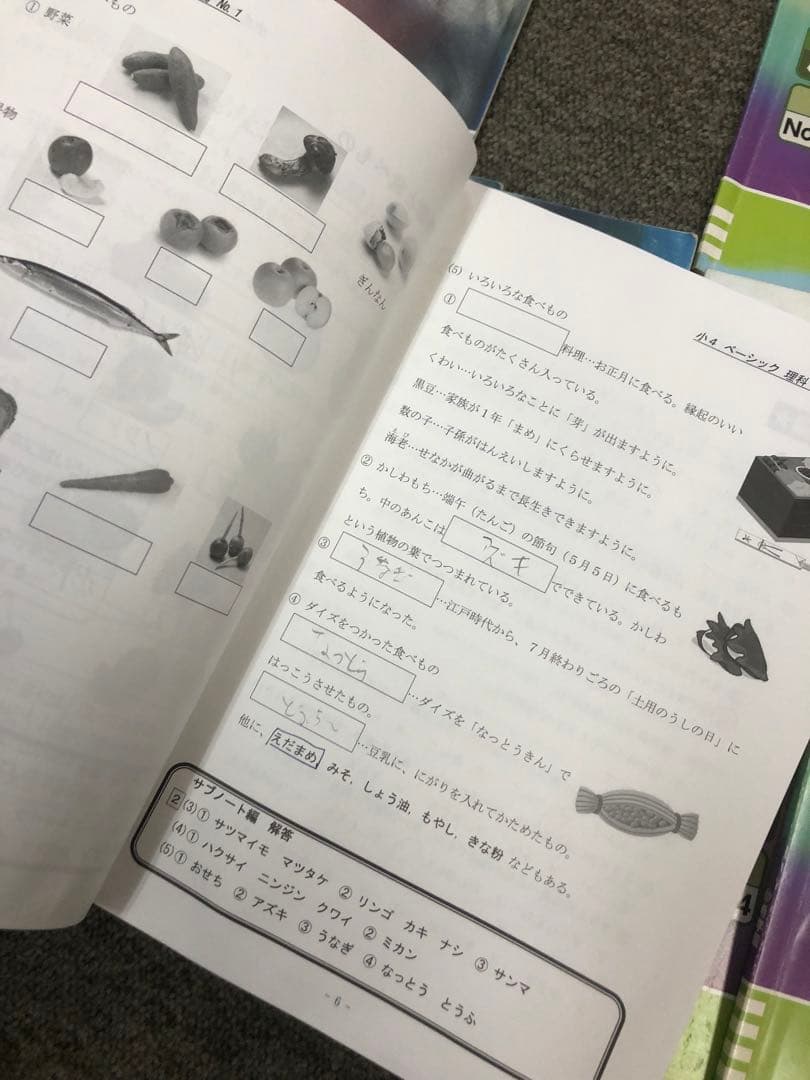 No. 1
もの
① 野菜
ぎんなん
小4 ベーシック 理科
(5) いろいろな食べもの
① 料理…お正月に食べる。縁起のいい
食べものがたくさん入っている。
くわい…いろいろなことに「芽」が出ますように。
黒豆…家族が1年「まめ」にくらせますように。
数の子…子孫がはんえいしますように。
海老…せなかが曲がるまで長生きできますように。
② かしわもち…端午（たんご）の節句（5月5日）に食べるも
ち。中のあんこは アズキ でできている。かしわ
という植物の葉でつつまれている。
③ うなぎ …江戸時代から、7月終わりごろの「土用のうしの日」に
食べるようになった。
④ ダイズをつかった食べもの
なっとう …ダイズを「なっとうきん」で
はっこうさせたもの。
とうふ …豆乳に、にがりを入れてかためたもの。
他に、えだまめ みそ，しょう油，もやし，きな粉 などもある。
サブノート編 解答
2 (3)① サツマイモ マツタケ ② リンゴ カキ ナシ ③ サンマ
(4)① ハクサイ ニンジン クワイ ② ミカン
(5)① おせち ② アズキ ③ うなぎ ④ なっとう とうふ
- 6 -
No
4